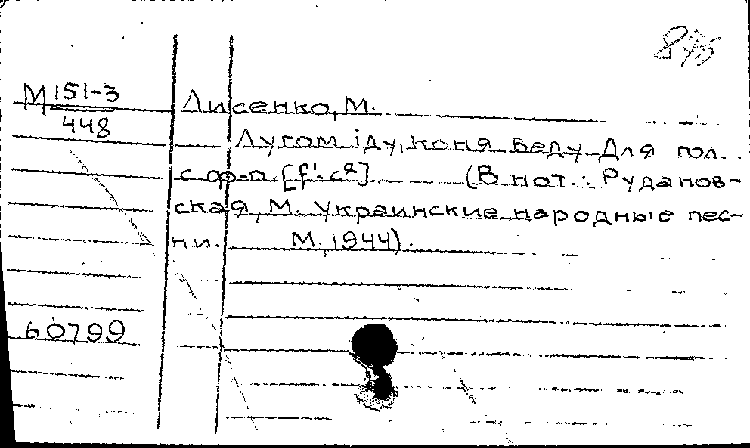 М 151-3
448
Лисенко, М.
Лугом іду, коня веду. Для гол.
с ф-п. [f'-c²] (В нот.: Рудanов-
ская, М. Украинские народные пес-
ни. М., 1944).
60799